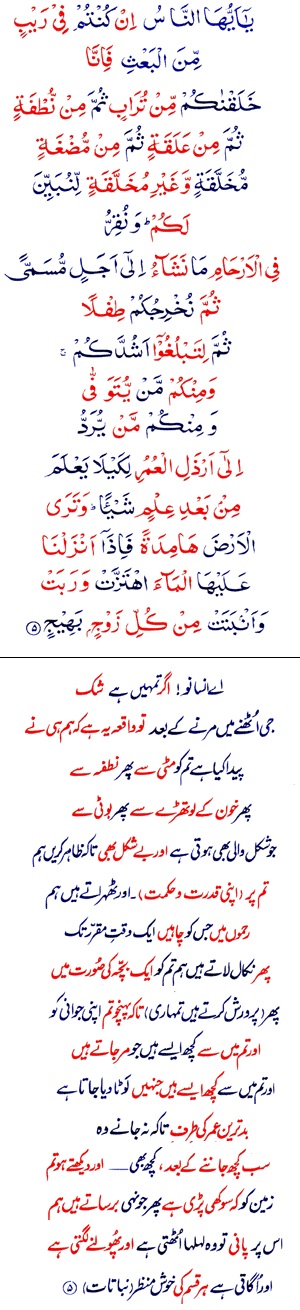 يٰۤاَيُّهَا النَّاسُ اِنْ كُنْتُمْ فِيْ رَيْبٍ
مِّنَ الْبَعْثِ فَاِنَّا
خَلَقْنٰكُمْ مِّنْ تُرَابٍ ثُمَّ مِنْ نُّطْفَةٍ
ثُمَّ مِنْ عَلَقَةٍ ثُمَّ مِنْ مُّضْغَةٍ
مُّخَلَّقَةٍ وَّغَيْرِ مُخَلَّقَةٍ لِّنُبَيِّنَ
لَكُمْ ؕ وَنُقِرُّ
فِي الْاَرْحَامِ مَا نَشَآءُ اِلٰۤى اَجَلٍ مُّسَمًّى
ثُمَّ نُخْرِجُكُمْ طِفْلًا
ثُمَّ لِتَبْلُغُوْۤا اَشُدَّكُمْ ۚ
وَمِنْكُمْ مَّنْ يُّتَوَفّٰى
وَمِنْكُمْ مَّنْ يُّرَدُّ
اِلٰۤى اَرْذَلِ الْعُمُرِ لِكَيْلَا يَعْلَمَ
مِنْۢ بَعْدِ عِلْمٍ شَيْـًٔا ؕ وَتَرَى
الْاَرْضَ هَامِدَةً فَاِذَاۤ اَنْزَلْنَا
عَلَيْهَا الْمَآءَ اهْتَزَّتْ وَرَبَتْ
وَاَنْۢبَتَتْ مِنْ كُلِّ زَوْجٍۭ بَهِيْجٍ ۵
اے انسانو! اگر تمہیں ہے شک
جی اُٹھنے میں مرنے کے بعد تو واقعہ یہ ہے کہ ہم ہی نے
پیدا کیا ہے تم کو مٹی سے پھر نطفہ سے
پھر خون کے لوتھڑے سے پھر بوٹی سے
جو شکل والی بھی ہوتی ہے اور بے شکل بھی تاکہ ظاہر کریں ہم
تم پر (اپنی قدرت و حکمت)۔ اور ٹھہراتے ہیں ہم
رحموں میں جس کو چاہیں ایک وقتِ مقرّر تک
پھر نکال لاتے ہیں ہم تم کو ایک بچّہ کی صُورت میں
پھر (پرورش کرتے ہیں تمہاری) تاکہ پہنچو تم اپنی جوانی کو
اور تم میں سے کچھ ایسے ہیں جو مر جاتے ہیں
اور تم میں سے کچھ ایسے ہیں جنہیں لوٹا دیا جاتا ہے
بدترین عمر کی طرف تاکہ نہ جانے وہ
سب کچھ جاننے کے بعد، کچھ بھی ــــ اور دیکھتے ہو تم
زمین کو کہ سوکھی پڑی ہے پھر جونہی برساتے ہیں ہم
اس پر پانی تو وہ لہلہا اُٹھتی ہے اور پھُولنے لگتی ہے
اور اُگاتی ہے ہر قسم کی خوش منظر (نباتات) ۵